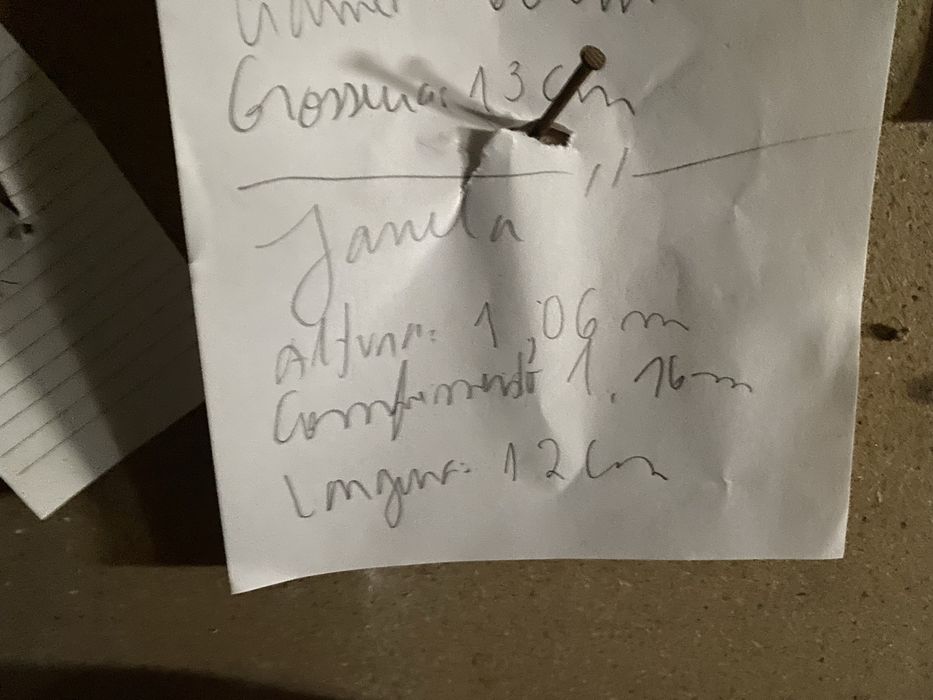 Grossura: 13 cm
//
Janela
Altura: 1,06 m
Comprimento 1.16 m
Largura: 12 cm